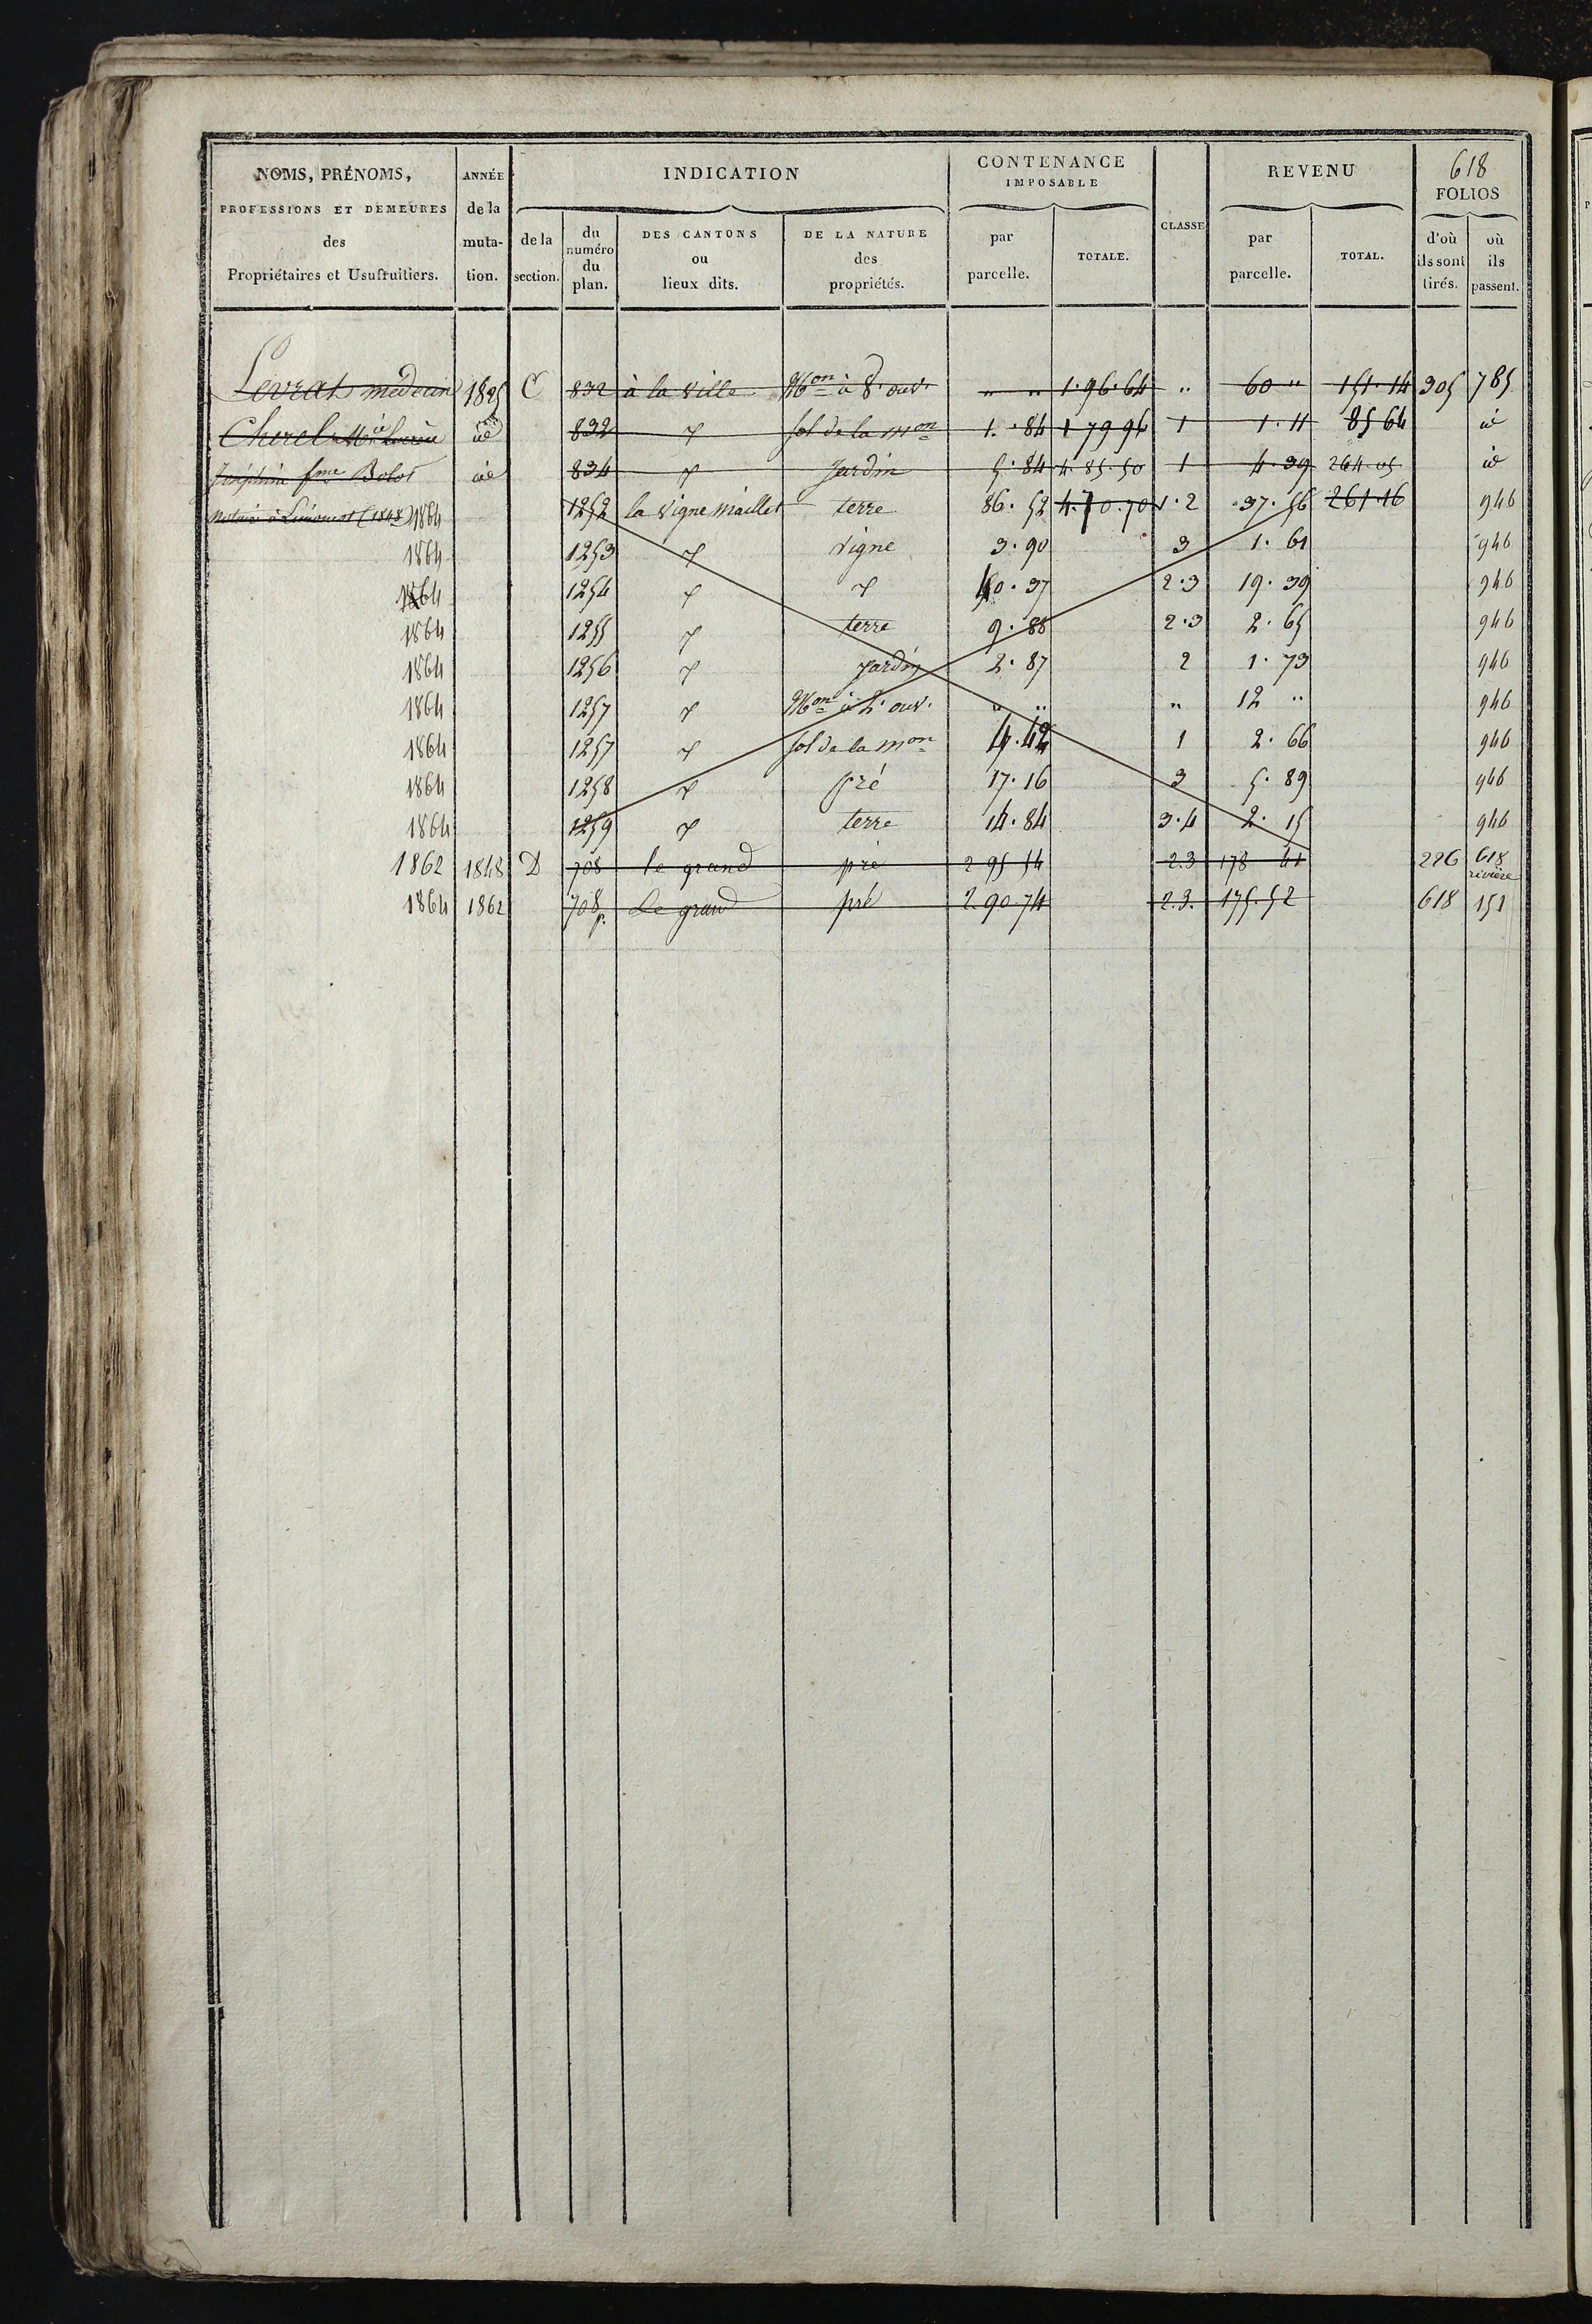 618
NOMS, PRÉNOMS, PROFESSIONS ET DEMEURES des Propriétaires et Usufruitiers. | ANNÉE de la muta-tion. | INDICATION de la section. | du numéro du plan. | DES CANTONS ou lieux dits. | DE LA NATURE des propriétés. | CONTENANCE IMPOSABLE par parcelle. | TOTALE. | CLASSE | REVENU par parcelle. | TOTAL. | FOLIOS d'où ils sont tirés. | où ils passent.
Levrat médecin | 1825 | C | 832 | à la ville | Mon à 8. ouv. | " " | 1.96.64 | " | 60 " | 151.14 | 305 | 785
Cherel | id | 832 | sol de la mon | 1.84 | 1 79 94 | 1 | 1.11 | 85 64 | id
Joséphine fme Bolot | id | 834 | Jardin | 5.84 | 4.85.50 | 1 | 4.39 | 264.05 | id
notaire à (1848) 1864 | 1252 | la Vigne Maillet | terre | 86.52 | 4.70.70 | 1.2 | 37.56 | 261.16 | 946
1864 | 1253 | vigne | 3.90 | 3 | 1.61 | 946
1864 | 1254 | 40.37 | 2.3 | 19.39 | 946
1864 | 1255 | terre | 9.88 | 2.3 | 2.65 | 946
1864 | 1256 | Jardin | 2.87 | 2 | 1.73 | 946
1864 | 1257 | Mon à 2. ouv. | " " | " | 12 " | 946
1864 | 1257 | sol de la mon | 4.42 | 1 | 2.66 | 946
1864 | 1258 | pré | 17.16 | 3 | 5.89 | 946
1864 | 1259 | terre | 14.84 | 3.4 | 2.15 | 946
1862 | 1848 | D | 708 | le grand | pré | 2 95 54 | 2.3 | 178 41 | 226 | 618 rivière
1864 | 1862 | 708 p. | le grand | pré | 2.90.74 | 2.3. | 175.52 | 618 | 151